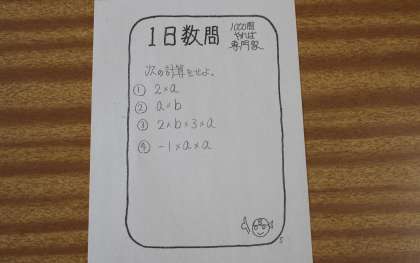 1日数問
1000問
やれば
専門家
次の計算をせよ。
① 2×a
② a×b
③ 2×b×3×a
④ -1×a×a